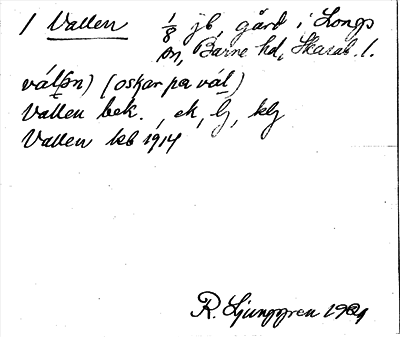 1 Vallen 1/8 jb, gård i Longs
sn, Barne hd, Skarab. l.
vál(ə̣n) (oskar pa vál)
Vallen bek., ek, lj, klj
Vallen kb 1914
R. Ljunggren 1921